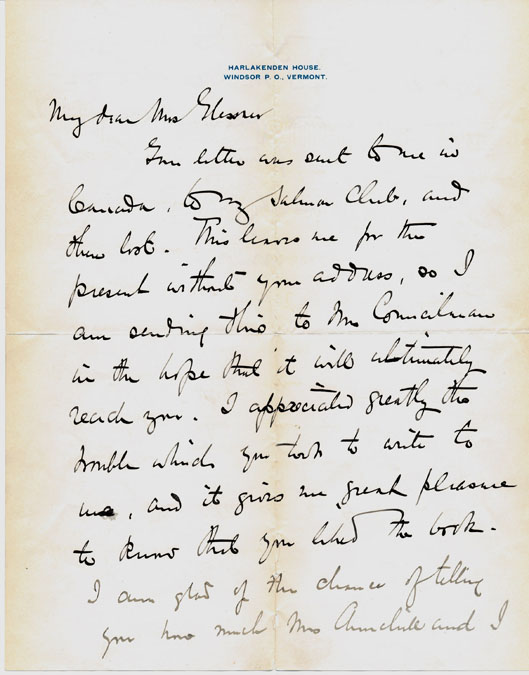 HARLAKENDEN HOUSE.
WINDSOR P. O., VERMONT.
My dear Mrs Glessner
Your letter was sent to me in
Canada, to my Salmon Club, and
then lost. This leaves me for the
present without your address, so I
am sending this to Mrs Councilman
in the hope that it will ultimately
reach you. I appreciated greatly the
trouble which you took to write to
me, and it gives me great pleasure
to know that you liked the book.
I am glad of the chance of telling
you how much Mrs Churchill and I